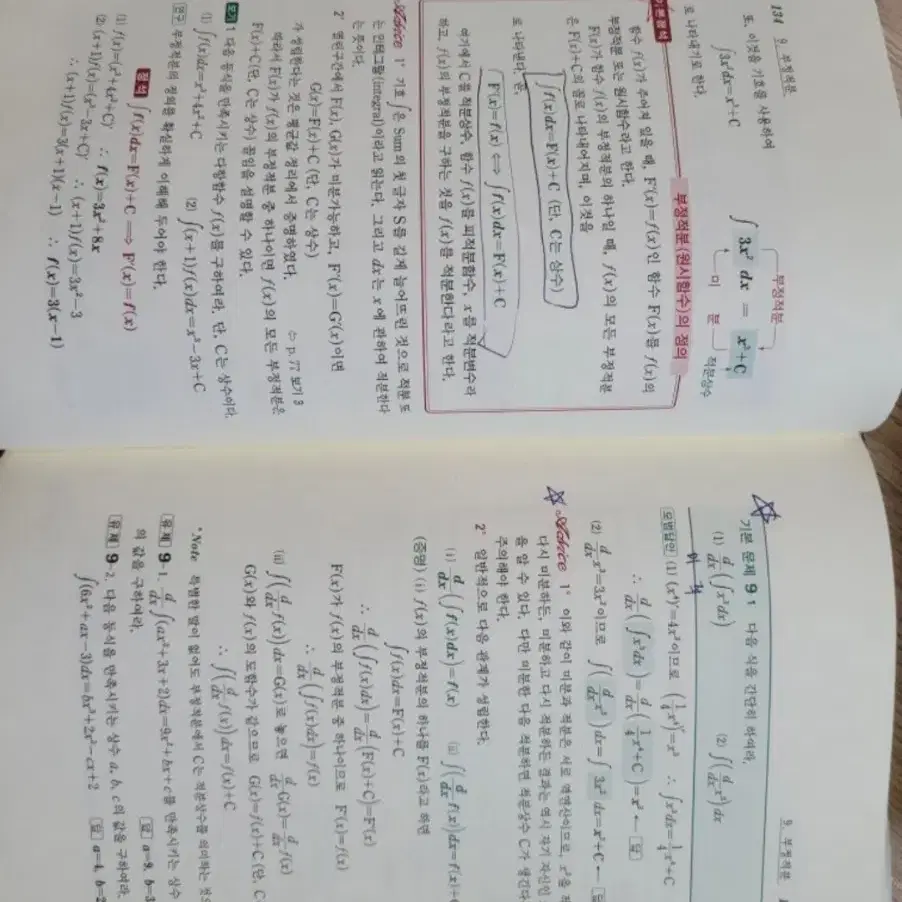 134 9. 부정적분
또, 이것을 기호를 사용하여
∫3x²dx=x³+C
로 나타내기로 한다.
부정적분
∫ 3x² dx = x³+C
미 분
적분상수
기본정석
부정적분(원시함수)의 정의
함수 f(x)가 주어져 있을 때, F'(x)=f(x)인 함수 F(x)를 f(x)의
부정적분 또는 원시함수라고 한다.
F(x)가 함수 f(x)의 부정적분의 하나일 때, f(x)의 모든 부정적분
은 F(x)+C의 꼴로 나타내어지며, 이것을
∫f(x)dx=F(x)+C (단, C는 상수)
로 나타낸다. 곧,
F'(x)=f(x) ⟺ ∫f(x)dx=F(x)+C
여기에서 C를 적분상수, 함수 f(x)를 피적분함수, x를 적분변수라
하고, f(x)의 부정적분을 구하는 것을 f(x)를 적분한다라고 한다.
Advice 1° 기호 ∫은 Sum의 첫 글자 S를 길게 늘어뜨린 것으로 적분 또
는 인테그랄(integral)이라고 읽는다. 그리고 dx는 x에 관하여 적분한다
는 뜻이다.
2° 열린구간에서 F(x), G(x)가 미분가능하고, F'(x)=G'(x)이면
G(x)=F(x)+C (단, C는 상수)
가 성립한다는 것은 평균값 정리에서 증명하였다. ⇦ p. 77 보기 3
따라서 F(x)가 f(x)의 부정적분 중 하나이면 f(x)의 모든 부정적분은
F(x)+C(단, C는 상수) 꼴임을 설명할 수 있다.
보기 1 다음 등식을 만족시키는 다항함수 f(x)를 구하여라. 단, C는 상수이다.
(1) ∫f(x)dx=x³+4x²+C (2) ∫(x+1)f(x)dx=x³-3x+C
연구 부정적분의 정의를 확실하게 이해해 두어야 한다.
정석 ∫f(x)dx=F(x)+C ⟹ F'(x)=f(x)
(1) f(x)=(x³+4x²+C)' ∴ f(x)=3x²+8x
(2) (x+1)f(x)=(x³-3x+C)' ∴ (x+1)f(x)=3x²-3
∴ (x+1)f(x)=3(x+1)(x-1) ∴ f(x)=3(x-1)
9. 부정적분
기본 문제 9-1 다음 식을 간단히 하여라.
(1) d/dx(∫x³dx) (2) ∫(d/dx x³)dx
모범답안 (1) (x⁴)'=4x³이므로 (1/4 x⁴)'=x³ ∴ ∫x³dx=1/4 x⁴+C
∴ d/dx(∫x³dx)=d/dx(1/4 x⁴+C)=x³ ← 답
(2) d/dx x³=3x²이므로 ∫(d/dx x³)dx=∫3x² dx=x³+C ←
Advice 1° 이와 같이 미분과 적분은 서로 역연산이므로, x³을
다시 미분하든, 미분하고 다시 적분하든 결과는 역시 자기 자신인
을 알 수 있다. 다만 미분한 다음 적분하면 적분상수 C가 생긴다
주의해야 한다.
2° 일반적으로 다음 관계가 성립한다.
(i) d/dx(∫f(x)dx)=f(x) (ii) ∫(d/dx f(x))dx=f(x)+
(증명) (i) f(x)의 부정적분의 하나를 F(x)라고 하면
∫f(x)dx=F(x)+C
∴ d/dx(∫f(x)dx)=d/dx(F(x)+C)=F'(x)
F(x)가 f(x)의 부정적분 중 하나이므로 F'(x)=f(x)
∴ d/dx(∫f(x)dx)=f(x)
(ii) ∫(d/dx f(x))dx=G(x)로 놓으면 d/dx G(x)=d/dx f(x)
G(x)와 f(x)의 도함수가 같으므로 G(x)=f(x)+C (단, C
∴ ∫(d/dx f(x))dx=f(x)+C
*Note 특별한 말이 없어도 부정적분에서 C는 적분상수를 의미하는 것
유제 9-1. d/dx∫(ax²+3x+2)dx=9x²+bx+c를 만족시키는 상수
의 값을 구하여라. 답 a=9, b=3
유제 9-2. 다음 등식을 만족시키는 상수 a, b, c의 값을 구하여라.
∫(6x²+ax-3)dx=bx³+2x²-cx+2 답 a=4, b=2